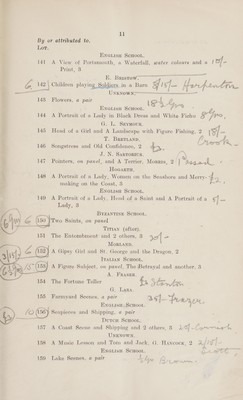 11
By or attributed to.
LOT.
ENGLISH SCHOOL.
141 A View of Portsmouth, a Waterfall, water colours and a
Print, 3
E. BRISTOW.
6 142 Children playing Soldiers in a Barn 3/15/- Harpenton
UNKNOWN.
143 Flowers, a pair 18½ gns
ENGLISH SCHOOL.
144 A Portrait of a Lady in Black Dress and White Fichu 8 gns.
G. L. SEYMOUR.
145 Head of a Girl and A Landscape with Figure Fishing, 2 15/-
T. BRETLAND. Crook
146 Songstress and Old Confidence, 2 £2.
J. N. SARTORIUS.
147 Pointers, on panel, and A Terrier, Morris, 2
HOGARTH.
148 A Portrait of a Lady, Women on the Seashore and Merry-
making on the Coast, 3 £2.
ENGLISH SCHOOL.
149 A Portrait of a Lady, Head of a Saint and A Portrait of a
Lady, 3
BYZANTINE SCHOOL.
6 150 Two Saints, on panel
TITIAN (after).
151 The Entombment and 2 others, 3 30/-
MORLAND.
152 A Gipsy Girl and St. George and the Dragon, 2
ITALIAN SCHOOL.
153 A Figure Subject, on panel, The Betrayal and another, 3
A. FRASER.
154 The Fortune Teller £3 Stanton
G. LARA.
155 Farmyard Scenes, a pair 35/- Frazer
ENGLISH SCHOOL.
10 156 Seapieces and Shipping, a pair
DUTCH SCHOOL.
157 A Coast Scene and Shipping and 2 others, 3
UNKNOWN.
158 A Music Lesson and Tom and Jack, G. HANCOCK, 2 2/15/-
ENGLISH SCHOOL.
159 Lake Scenes, a pair Brown